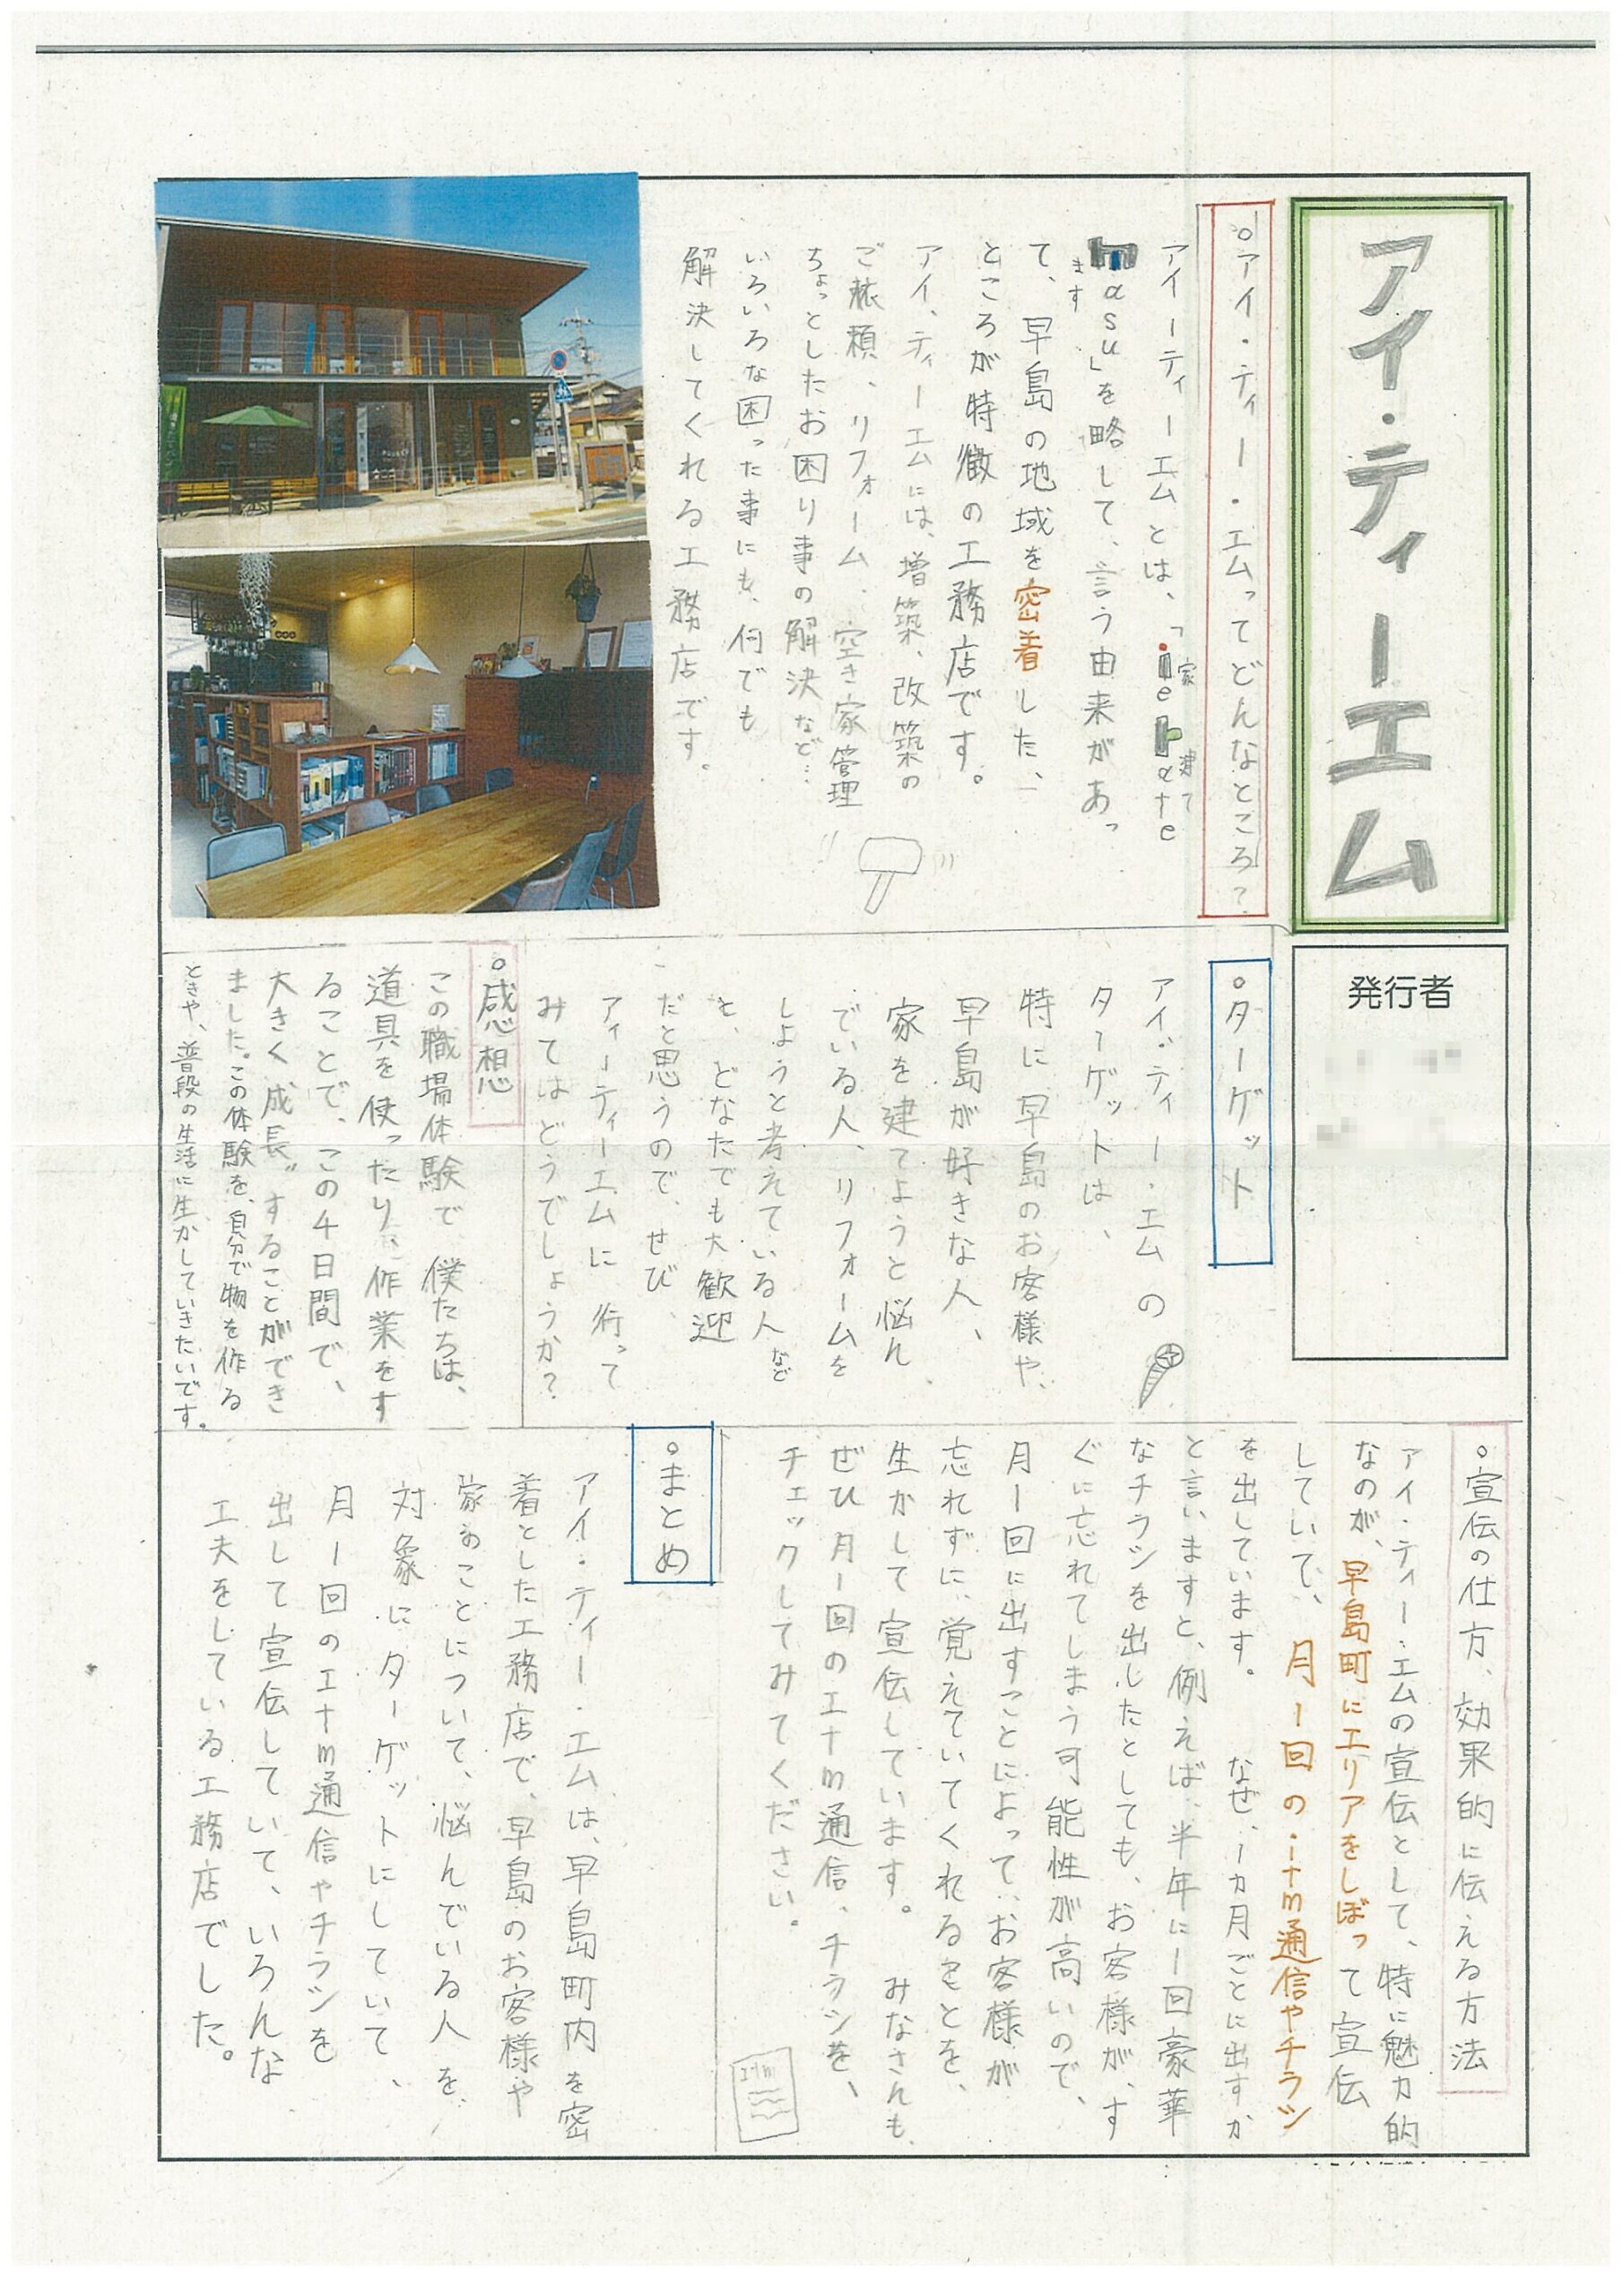 アイ・ティーエム
発行者
○アイ・ティー・エムってどんなところ?
アイーティーエムとは、「ie tate
家 建て
masu」を略して、言う由来があっ
ます
て、早島の地域を密着した、
ところが特徴の工務店です。
アイ、ティーエムには、増築、改築の
ご依頼、リフォーム、空き家管理
ちょっとしたお困り事の解決など…
いろいろな困った事にも、何でも
解決してくれる工務店です。
○ターゲット
アイ・ティー・エムの
ターゲットは、
特に早島のお客様や、
早島が好きな人、
家を建てようと悩ん
でいる人、リフォームを
しようと考えている人など
と、どなたでも大歓迎
だと思うので、ぜひ、
アィーティーエムに行って
みてはどうでしょうか?
○感想
この職場体験で、僕たちは、
道具を使ったり、作業をす
ることで、この4日間で、
大きく成長"することができ
ました。この体験を、自分で物を作る
ときや、普段の生活に生かしていきたいです。
○宣伝の仕方、効果的に伝える方法
アイ・ティー・エムの宣伝として、特に魅力的
なのが、早島町にエリアをしぼって宣伝
していて、月1回のitm通信やチラシ
を出しています。なぜ、1カ月ごとに出すか
と言いますと、例えば、半年に1回豪華
なチラシを出したとしても、お客様が、す
ぐに忘れてしまう可能性が高いので、
月1回に出すことによって、お客様が
忘れずに、覚えていてくれることを、
生かして宣伝しています。みなさんも、
ぜひ月1回のitm通信、チラシを、
チェックしてみてください。
itm
○まとめ
アイ・ティー・エムは、早島町内を密
着とした工務店で、早島のお客様や
家のことについて、悩んでいる人を、
対象にターゲットにしていて、
月1回のitm通信やチラシを
出して宣伝していて、いろんな
工夫をしている工務店でした。